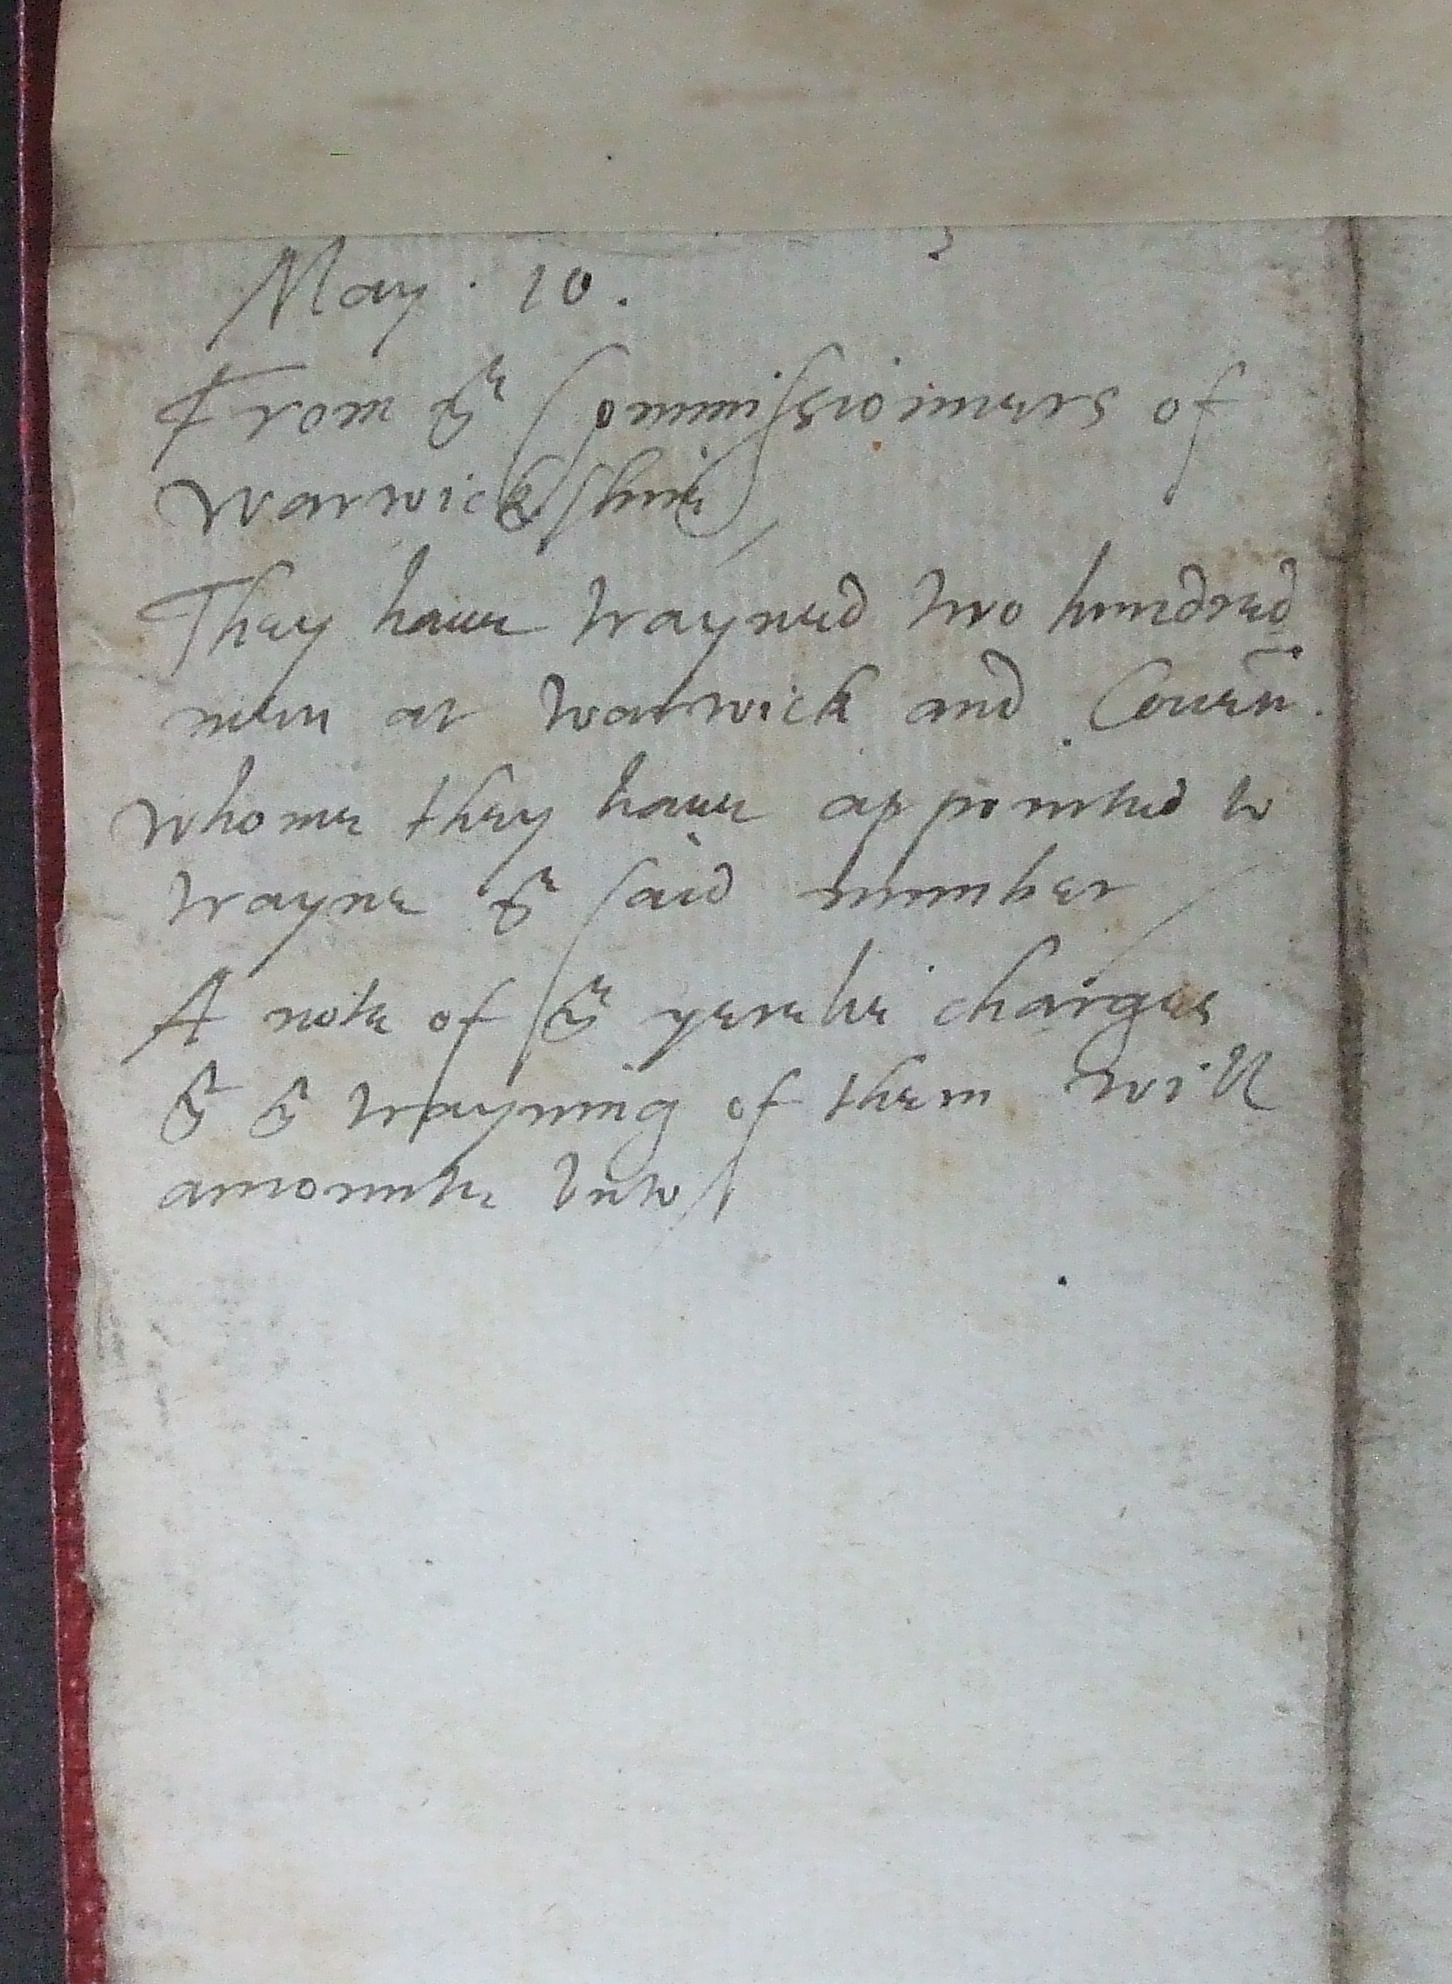 May. 10.
From ye Commissioiners of
warwickshire
They haue trayned two hundred
men at warwick and Couen.
whome they haue appointed to
trayne ye said number
A note of ye yerelie charges
yt ye trayning of them will
amounte vnto